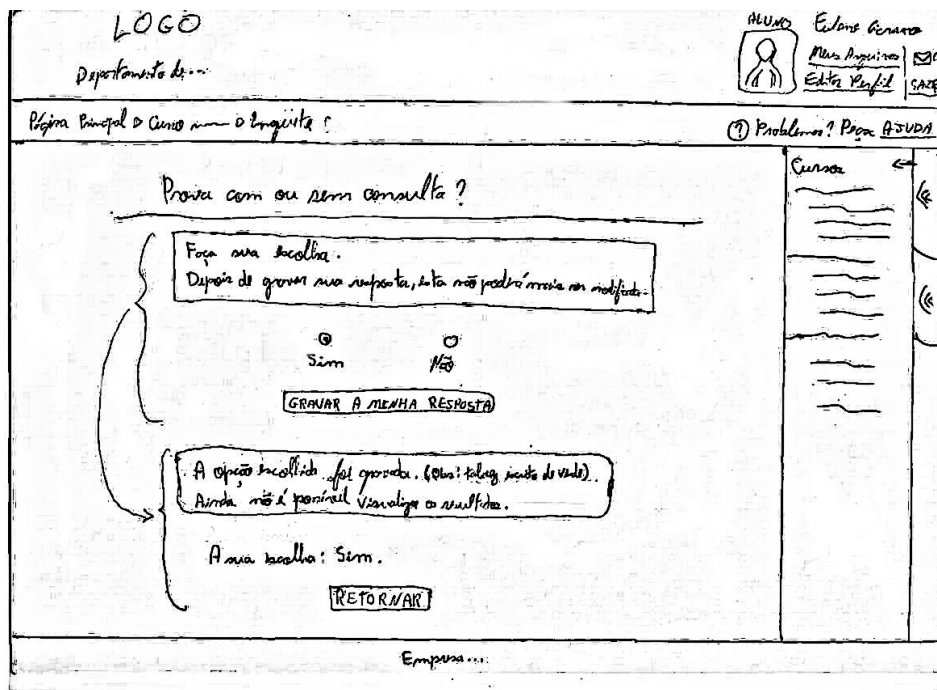 LOGO
Departamento de...
ALUNO
Meus Arquivos
Editar Perfil
Página Principal > Curso > Enquete
? Problemas? Peça AJUDA
Cursos
Prova com ou sem consulta?
Faça sua escolha.
Depois de gravar sua resposta, esta não poderá mais ser modificada.
Sim Não
GRAVAR A MINHA RESPOSTA
A opção escolhida foi gravada. (Obs: talvez escrito de verde).
Ainda não é possível visualizar os resultados.
A sua escolha: Sim.
RETORNAR
Empresa...